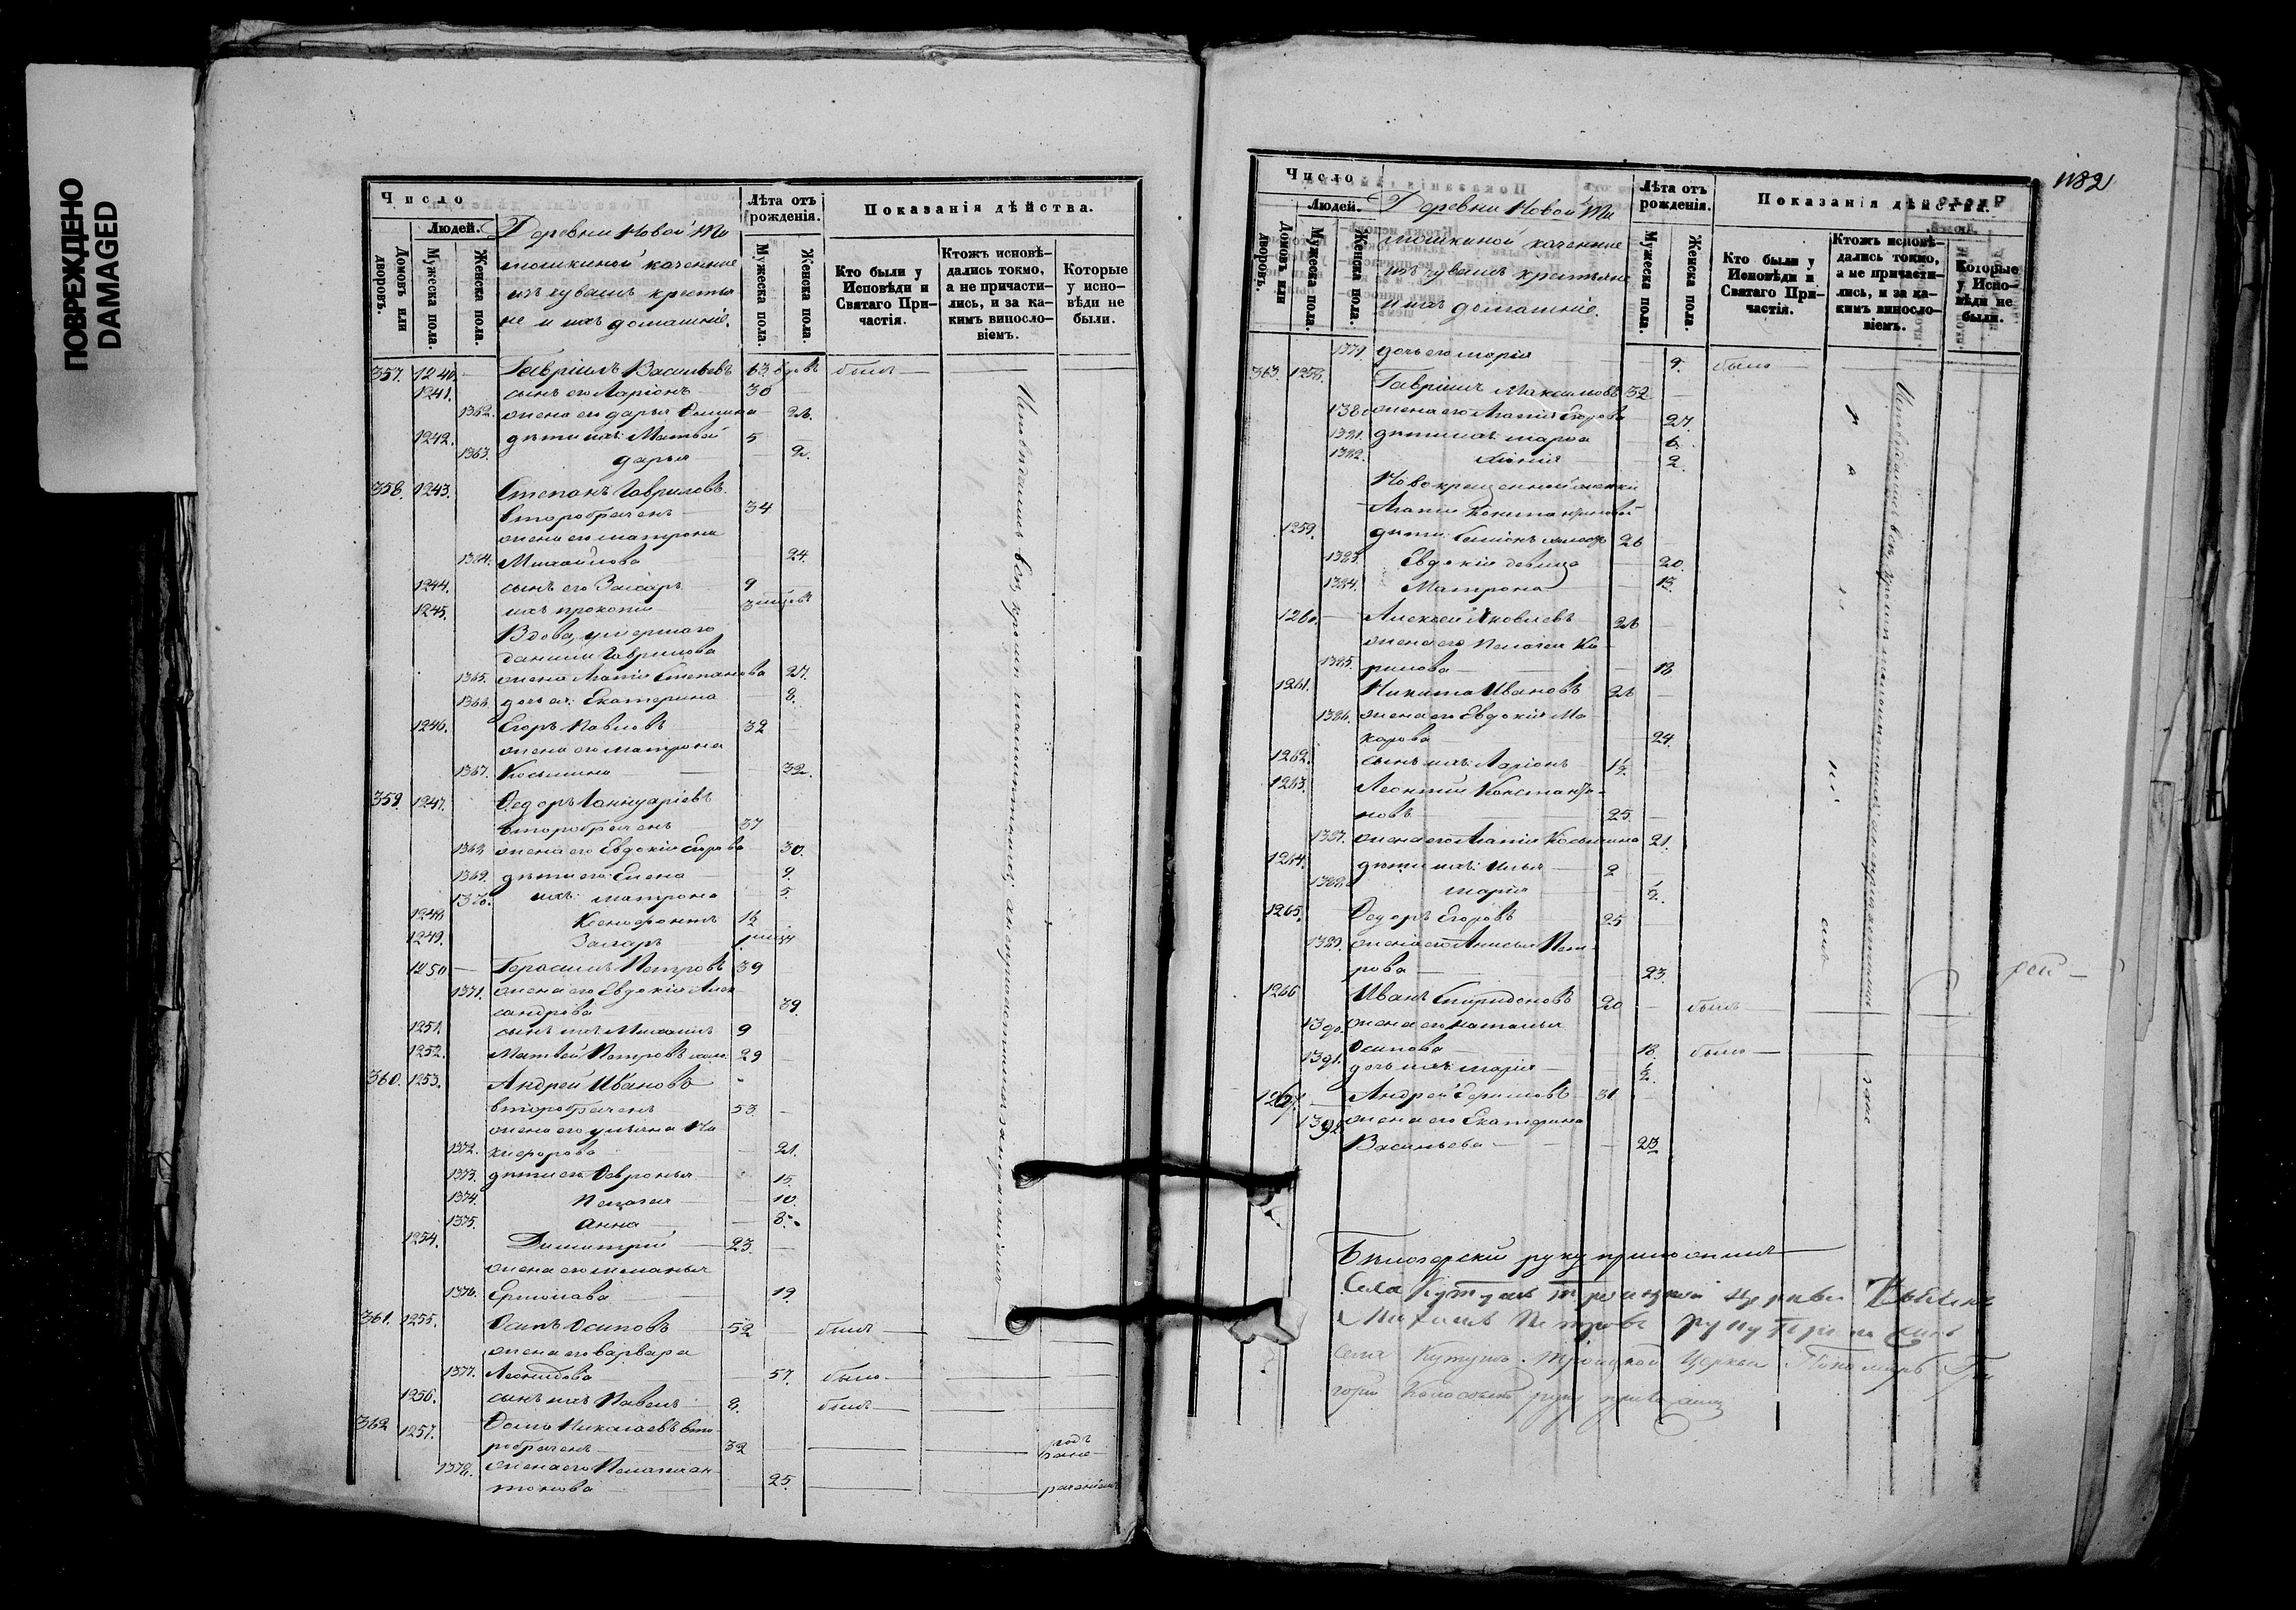 ПОВРЕЖДЕНО
DAMAGED
Число
Людей.
Домовъ или дворовъ.
Мужеска пола.
Женска пола.
Деревни Новой Ти
мошкиной
изъ чувашъ крестья
не и ихъ домашніе.
Лѣта отъ рожденія.
Мужеска пола.
Женска пола.
Показанія дѣйства.
Кто были у Исповѣди и Святаго Причастія.
Ктожъ исповѣдались токмо, а не причастились, и за какимъ винословіемъ.
Которые у исповѣди не были.
357. 1240. Гавріилъ Васильевъ 63 вдовъ былъ
1241. сынъ его Ларіонъ 30
1362. жена его дарья
1242. дѣти ихъ: Матвѣй 5
1363. дарья 2.
358. 1243. Степанъ Гавриловъ
второбраченъ 34
жена его матрона
1364. Михайлова 24.
1244. сынъ его Захаръ 9
1245. ихъ прокопій
Вдова, умершаго
даніила Гаврилова
1365. жена Агапія Степанова 27.
1366. дочь ея: Екатерина 8.
1246. Егоръ Павловъ 32
жена его матрона
1367. Косьмина 32.
359. 1247. Ѳедоръ Іаннуаріевъ
второбраченъ 37
1368. жена его Евдокія Егорова 30.
1369. дѣти его: Елена 9.
1370. ихъ: матрона 5.
1248. Ксенофонтъ 1½
1249. Захаръ
1250. Герасимъ Петровъ 39
1371. жена его Евдокія Алек
сандрова 39.
1251. сынъ ихъ Михаилъ 9
1252. Матвей Петровъ 29
360. 1253. Андрей Ивановъ
второбраченъ 53.
жена его ульяна Ни
1372. кифорова 21.
1373. дѣти его Ѳевронья 15.
1374. Пелагея 10.
1375. Анна 8.
1254. Димитрій 23.
жена его меланья
1376. Ермолаева 19.
361. 1255. Осипъ Осиповъ 52 былъ
жена его варвара
1377. Леонидова 57. была
1256. сынъ ихъ Павелъ 8. былъ
362 1257. Ѳома Николаевъ вто
робраченъ 32
1378. жена его Пелагея ан
тонова 25.
Исповѣдались всѣ, кромѣ
1182
Число
Людей.
Домовъ или дворовъ.
Мужеска пола.
Женска пола.
Деревни Новой Ти
мошкиной
изъ чувашъ крестьяне
и ихъ домашніе.
Лѣта отъ рожденія.
Мужеска пола.
Женска пола.
Показанія дѣйства.
Кто были у Исповѣди и Святаго Причастія.
Ктожъ исповѣдались токмо, а не причастились, и за какимъ винословіемъ.
Которые у Исповѣди не были.
1379. дочь его марія 9. была
363. 1258. Гавріилъ Максимовъ 32
1380. жена его Агапія Егорова 27.
1381. дѣти ихъ: марѳа 6.
1382. 2.
Новокрещенной
Агапіи
1259. дѣти: Симіонъ 26
1383. Евдокія девица 20.
1384. Матрона 13.
1260. Алексей Яковлевъ
жена его Пелагея Ки
1385. рилова 18
1261. Никита Ивановъ
1386. жена его Евдокія Ма
карова 24.
1262. сынъ ихъ: Ларіонъ 1½.
1263. Леонтій Константи
новъ 25.
1387. жена его Агапія Косьмина 21.
1264. дѣти ихъ: Илья 2
1388. марія ½.
1265. Ѳедоръ Егоровъ 25
1389. жена его Анисья Пет
рова 23.
1266 Иванъ Спиридоновъ 20 былъ
1390. жена его наталья
Осипова 18. была
1391. дочь ихъ: марія ½.
1267. Андрей 31
1392. жена его Екатерина
Васильева 23.
Исповѣдались всѣ, кромѣ
Бѣлозерскій руку приложилъ
Села Троицкой церкви
Михаилъ Петровъ руку приложилъ
Села Троицкой Церкви Пономарь Гри
горій руку приложилъ